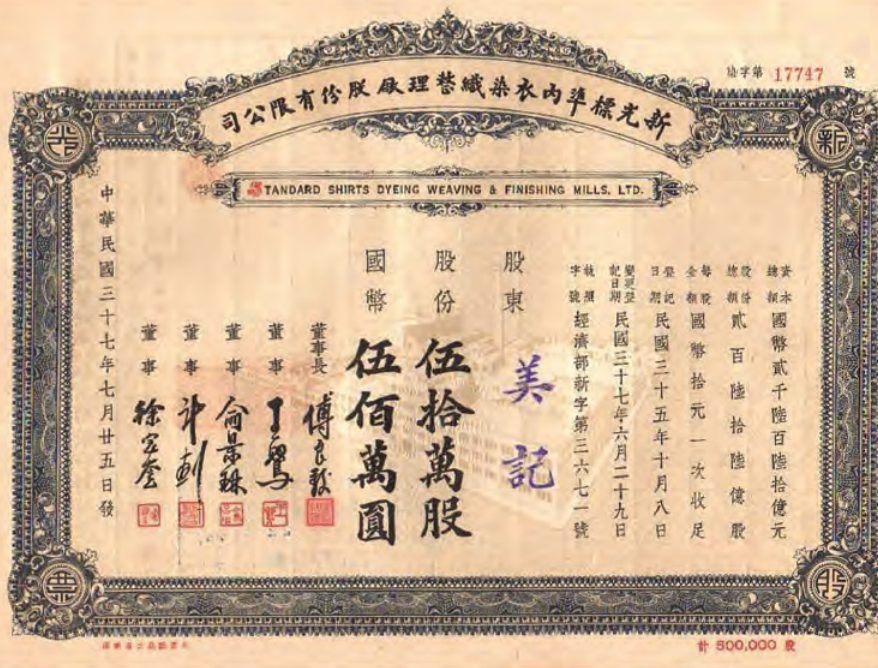 染字第 17747 號
新光標準內衣染織整理厰股份有限公司
新
光
股
票
STANDARD SHIRTS DYEING WEAVING & FINISHING MILLS, LTD.
資本總額國幣貳千陸百陸拾億元
股份總額貳百陸拾陸億股
每股金額國幣拾元一次收足
登記日期民國三十五年十月八日
變更登記日期民國三十七年六月二十九日
執照字號經濟部新字第三六七一號
股東 美記
股份 伍拾萬股
國幣 伍佰萬圓
董事長 傅良駿
董事
董事
董事
董事
中華民國三十七年七月廿五日發
計 500,000 股